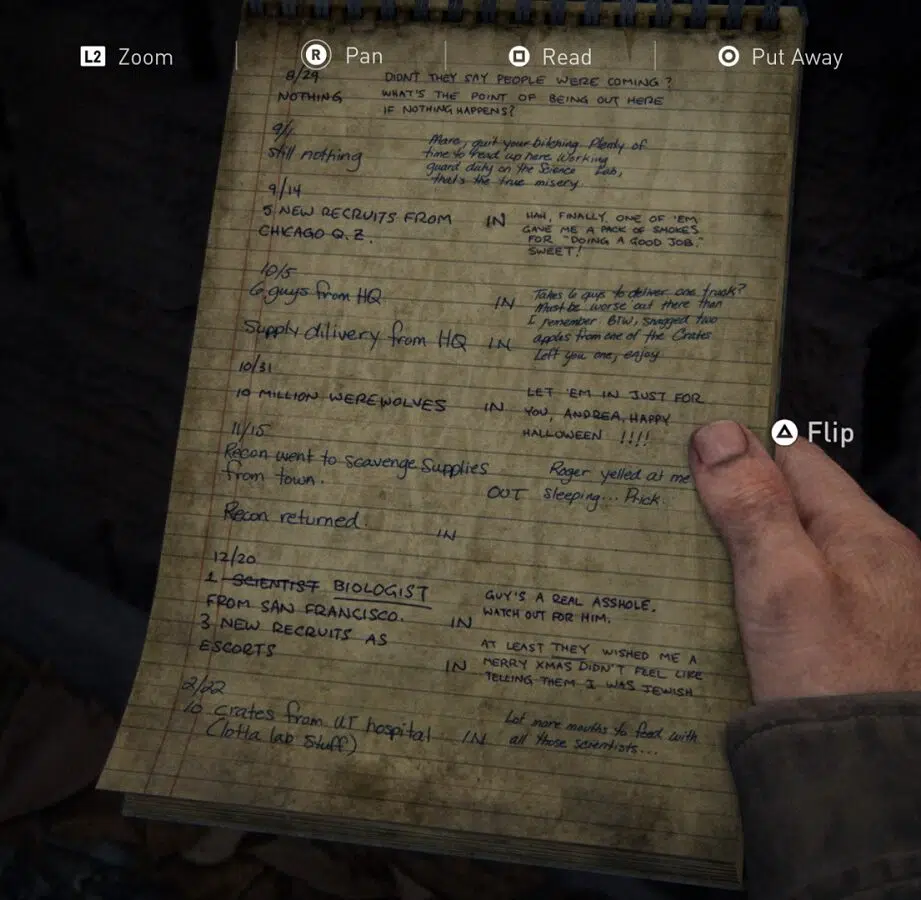 L2 Zoom R Pan Read Put Away
8/29 DIDN'T THEY SAY PEOPLE WERE COMING?
NOTHING WHAT'S THE POINT OF BEING OUT HERE
IF NOTHING HAPPENS?
9/1 Marc, quit your bitching Plenty of
still nothing time to read up here Working
guard duty on the Science Lab,
that's the true misery.
9/14
5 NEW RECRUITS FROM IN HAH, FINALLY. ONE OF 'EM
CHICAGO Q.Z. GAVE ME A PACK OF SMOKES
FOR "DOING A GOOD JOB."
SWEET!
10/5
6 guys from HQ IN Takes 6 guys to deliver one truck?
Must be worse out there than
I remember. BTW, snagged two
Supply dilivery from HQ IN apples from one of the Crates
Left you one, enjoy
10/31
10 MILLION WEREWOLVES IN LET 'EM IN JUST FOR
YOU, ANDREA. HAPPY
HALLOWEEN !!!!
Flip
11/15
Recon went to scavenge Supplies Roger yelled at me
from town. OUT sleeping... Prick.
Recon returned. IN
12/20
1 SCIENTIST BIOLOGIST GUY'S A REAL ASSHOLE.
FROM SAN FRANCISCO. IN WATCH OUT FOR HIM.
3 NEW RECRUITS AS AT LEAST THEY WISHED ME A
ESCORTS IN MERRY XMAS DIDN'T FEEL LIKE
TELLING THEM I WAS JEWISH
2/22
10 crates from UT hospital IN Lot more mouths to feed with
(lotta lab stuff) all those scientists...